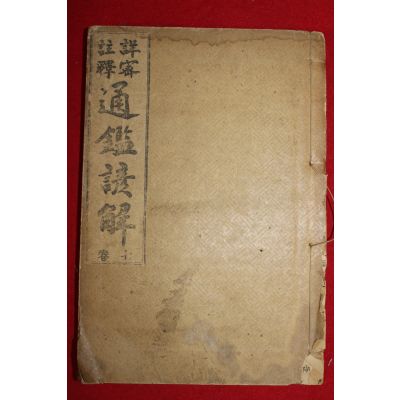 詳密
註釋
通鑑諺解
卷